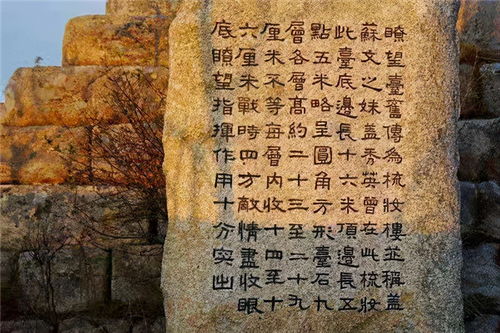 瞭望臺舊傳為梳妝樓並稱蓋
蘇文之妹蓋秀英曾在此梳妝
此臺底邊長十六米頂邊長五
點五米略呈圓角方形臺石九
層各層高約二十三至二十九
厘米不等每層內收十四至十
六厘米戰時四方敵情盡收眼
底瞭望指揮作用十分突出